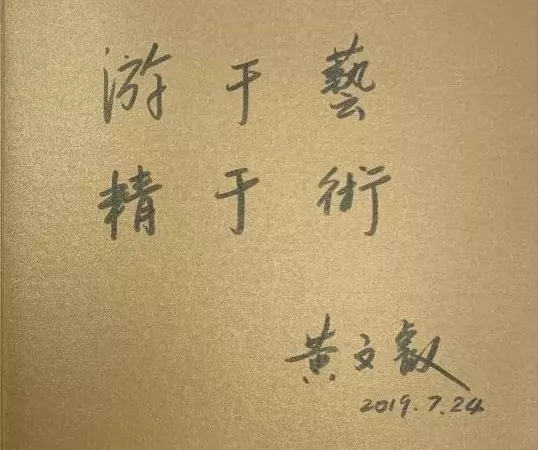 游于藝
精于術
黄文叡
2019.7.24